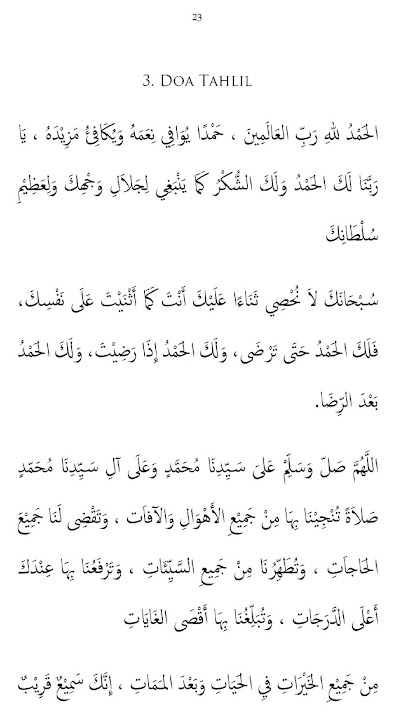 23
3. Doa Tahlil
الحَمْدُ لِلهِ رَبِّ العَالَمِينَ ، حَمْدًا يُوَافِي نِعَمَهُ وَيُكَافِئُ مَزِيْدَهُ ، يَا
رَبَّنَا لَكَ الحَمْدُ وَلَكَ الشُّكْرُ كَمَا يَنْبَغِي لِجَلَالِ وَجْهِكَ وَلِعَظِيْمِ
سُلْطَانِكَ
سُبْحَانَكَ لاَ نُحْصِي ثَنَاءًا عَلَيْكَ أَنْتَ كَمَا أَثْنَيْتَ عَلَى نَفْسِكَ،
فَلَكَ الحَمْدُ حَتَى تَرْضَى، وَلَكَ الحَمْدُ إِذَا رَضِيْتَ، وَلَكَ الحَمْدُ
بَعْدَ الرِّضَا.
اللَّهُمَّ صَلّ وَسَلِّمْ عَلىَ سَيِّدِنَا مُحَمَّدٍ وَعَلَى آلِ سَيِّدِنَا مُحَمّدٍ
صَلاَةً تُنْجِيْنَا بِهَا مِنْ جَمِيْعِ الأَهْوَالِ وَالآفَات ، وَتَقْضِى لَنَا جَمِيْعَ
الحَاجَاتِ ، وَتُطَهِّرُنَا مِنْ جَمِيعِ السَيِّئَاتِ ، وَتَرْفَعُنَا بِهَا عِنْدَكَ
أَعْلَى الدَّرَجَاتِ ، وَتُبَلِّغُنَا بِهَا أَقْصَى الغَايَاتِ
مِنْ جَمِيْعِ الخَيْرَاتِ فِي الحَيَاتِ وَبَعْدَ المَمَاتِ ، إِنَّكَ سَمِيْعٌ قَرِيْبٌ